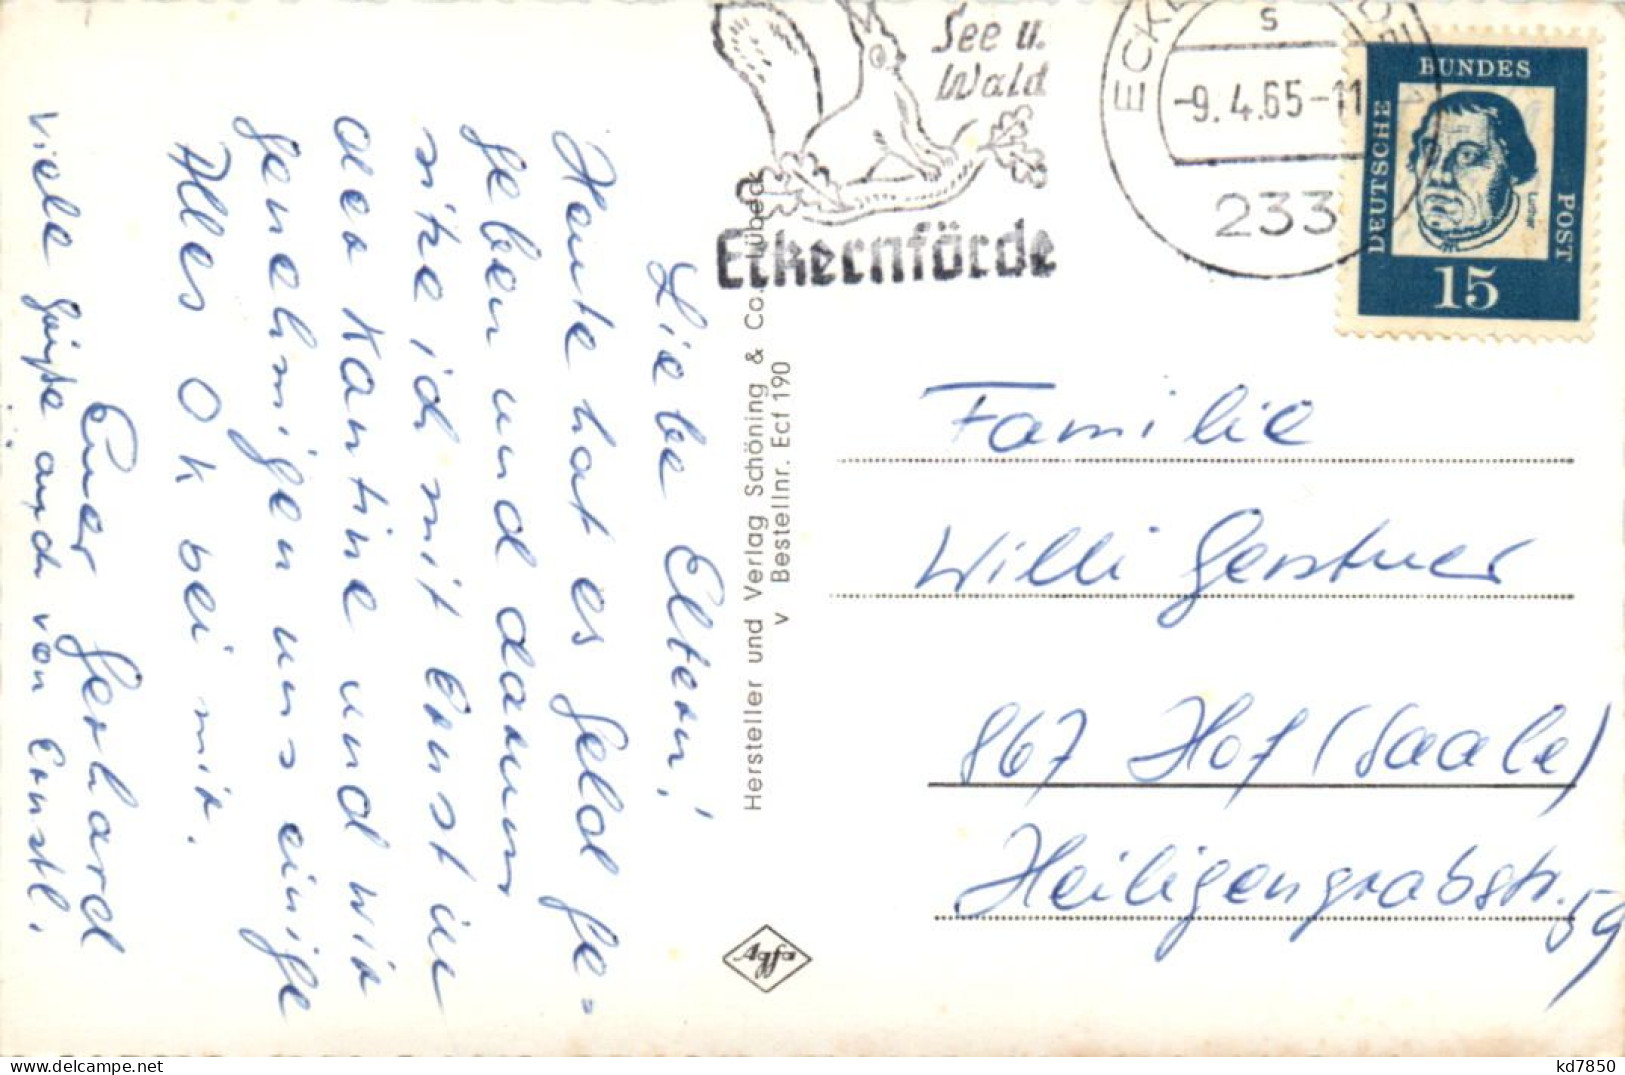 See u.
Wald
Eckernförde
s
-9.4.65-11
233
DEUTSCHE
BUNDES
POST
Luther
15
Liebe Eltern!
Heute hat es Geld ge=
geben und darum
sitze ich mit Ernst in
der Kantine und wir
genehmigen uns einige
Alles OK bei mir.
Euer Gerhard
viele Grüße auch von Ernstl.
Hersteller und Verlag Schöning & Co., Lübeck
v Bestellnr. Ecf 190
Agfa
Familie
Willi Gerstner
867 Hof (Saale)
Heiligengrabstr. 59
kd7850